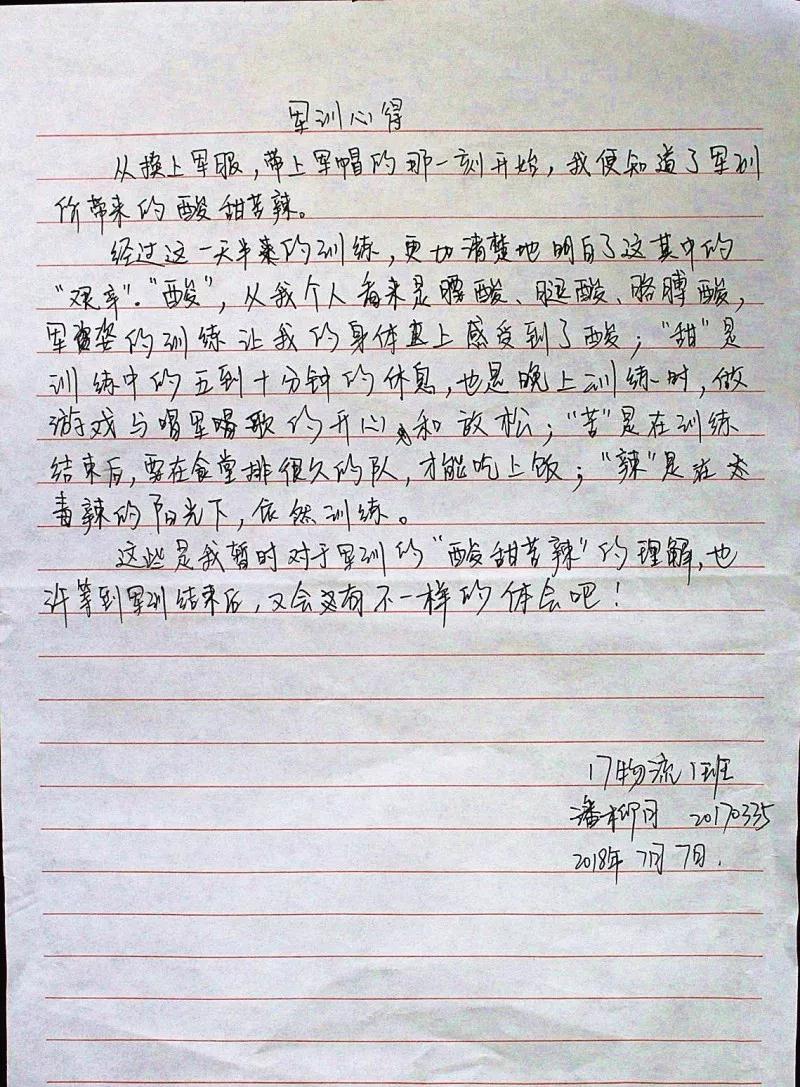 军训心得
从换上军服，带上军帽的那一刻开始，我便知道了军训
价带来的酸甜苦辣。
经过这一天半来的训练，更切清楚地明白了这其中的
“艰辛”.“酸”，从我个人看来是腰酸、腿酸、胳膊酸，
军姿的训练让我的身体上感受到了酸；“甜”是
训练中的五到十分钟的休息，也是晚上训练时，做
游戏与唱军歌的开心和放松；“苦”是在训练
结束后，要在食堂排很久的队，才能吃上饭；“辣”是在
毒辣的阳光下，依然训练。
这些是我暂时对于军训的“酸甜苦辣”的理解，也
许等到军训结束后，又会有不一样的体会吧！
17物流1班
潘柳月 20170335
2018年7月7日.